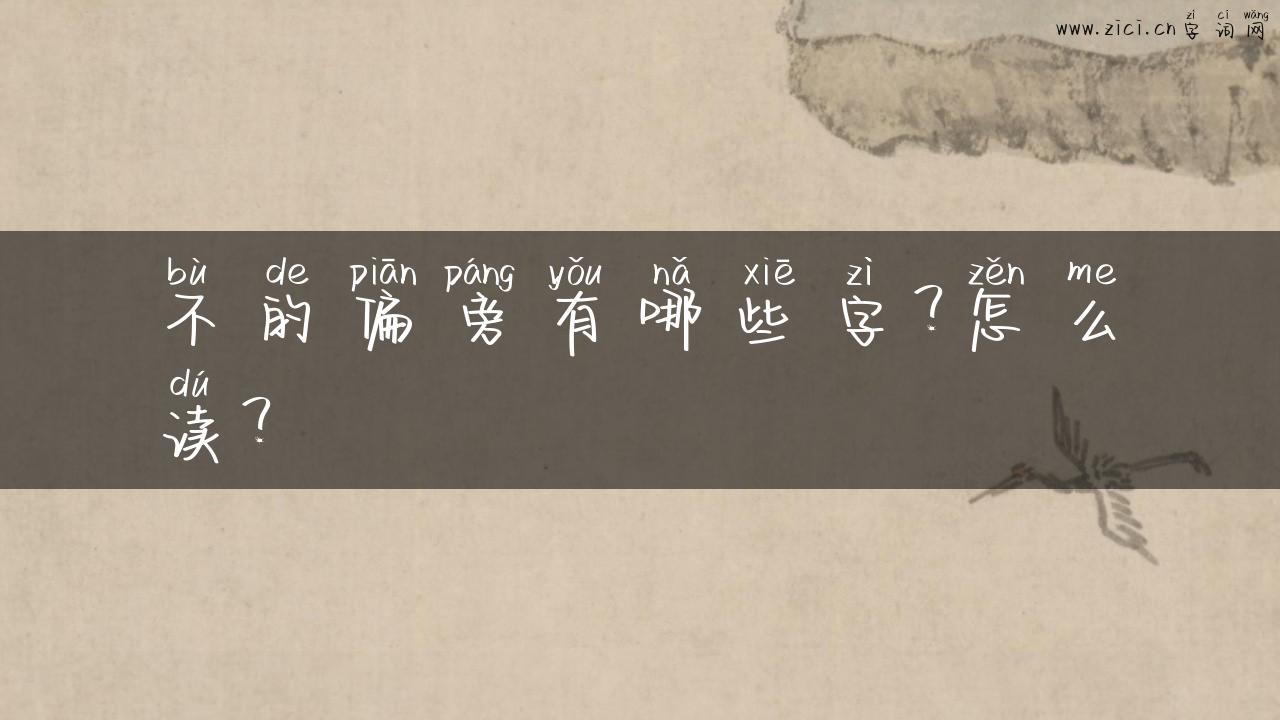 zì cí wǎng
www.zici.cn字词网
bù de piān páng yǒu nǎ xiē zì zěn me
不的偏旁有哪些字？怎么
dú
读？